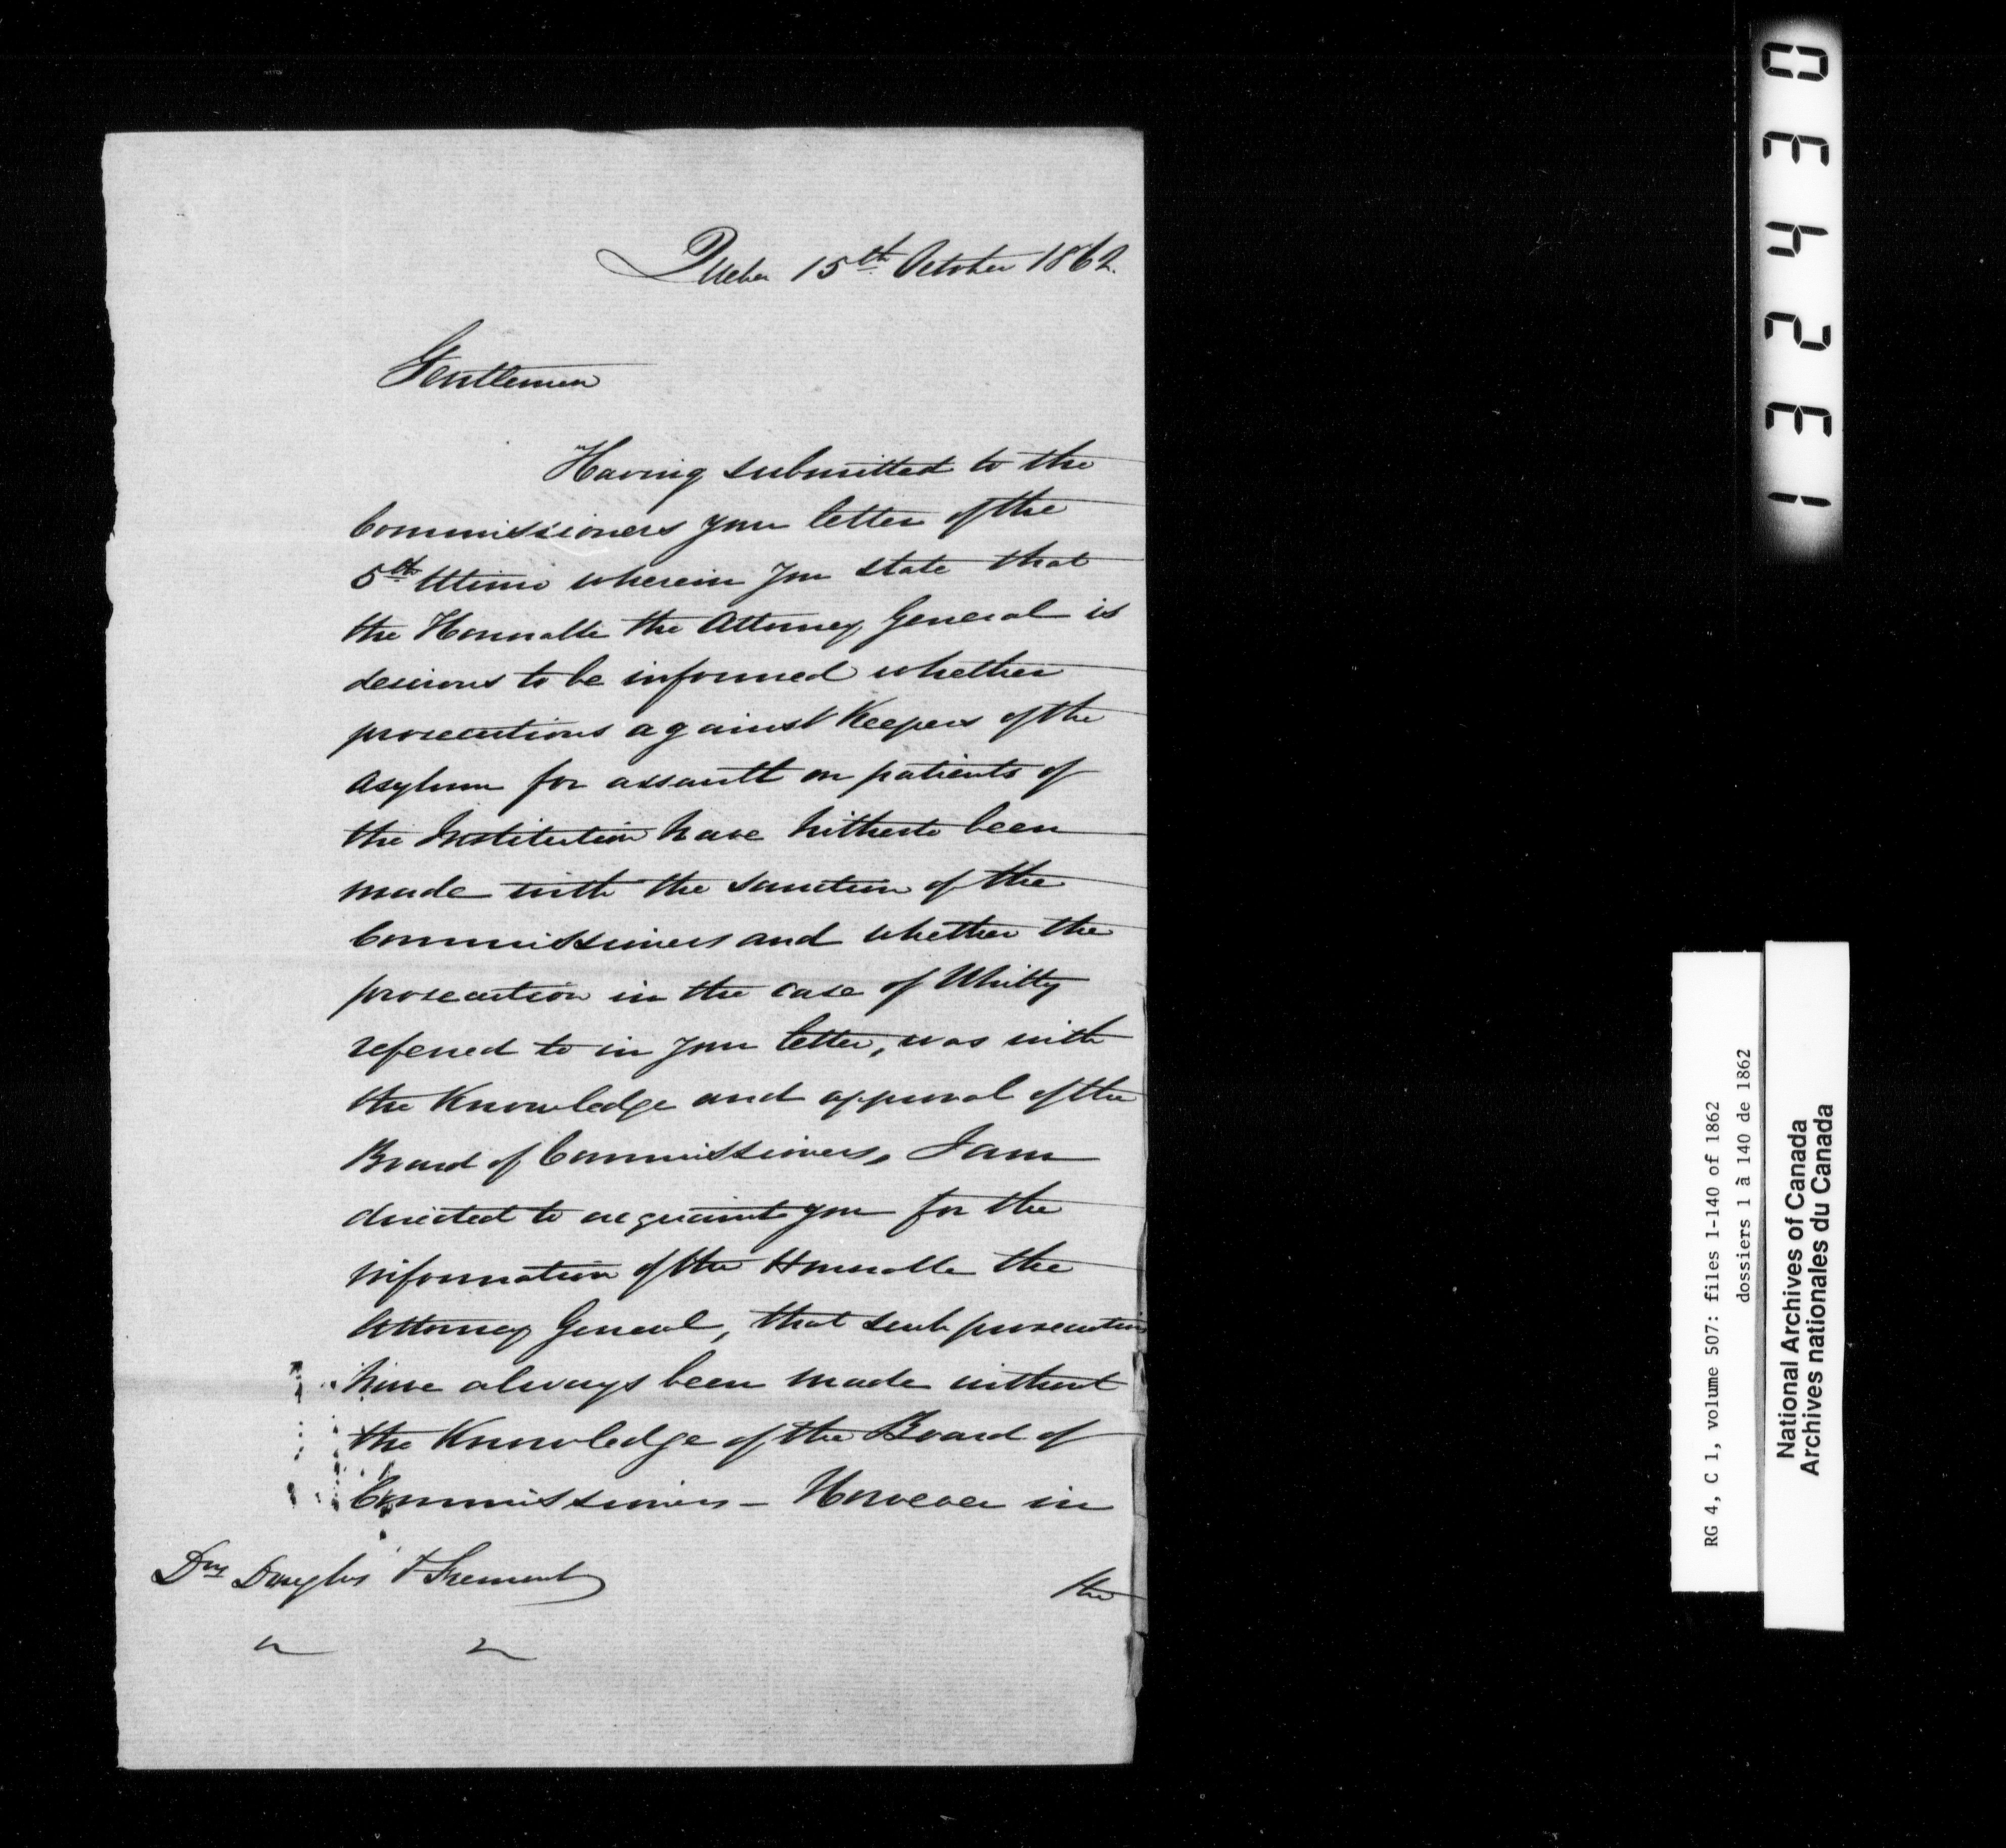 Quebec 15th October 1862.
Gentlemen
Having submitted to the
Commissioners your letter of the
5th Ultimo wherein you state that
the Honorable the Attorney General is
desirous to be informed whether
prosecutions against Keepers of the
Asylum for assault on patients of
the Institution have hitherto been
made with the sanction of the
Commissioners and whether the
prosecution in the case of Whitty
referred to in your letter, was with
the Knowledge and approval of the
Board of Commissioners, I am
directed to acquaint you for the
information of the Honorable the
Attorney General, that such prosecutions
have always been made without
the Knowledge of the Board of
Commissioners - However in
Drs Douglas & Fremont
the
034231
RG 4, C 1, volume 507: files 1-140 of 1862
dossiers 1 à 140 de 1862
National Archives of Canada
Archives nationales du Canada